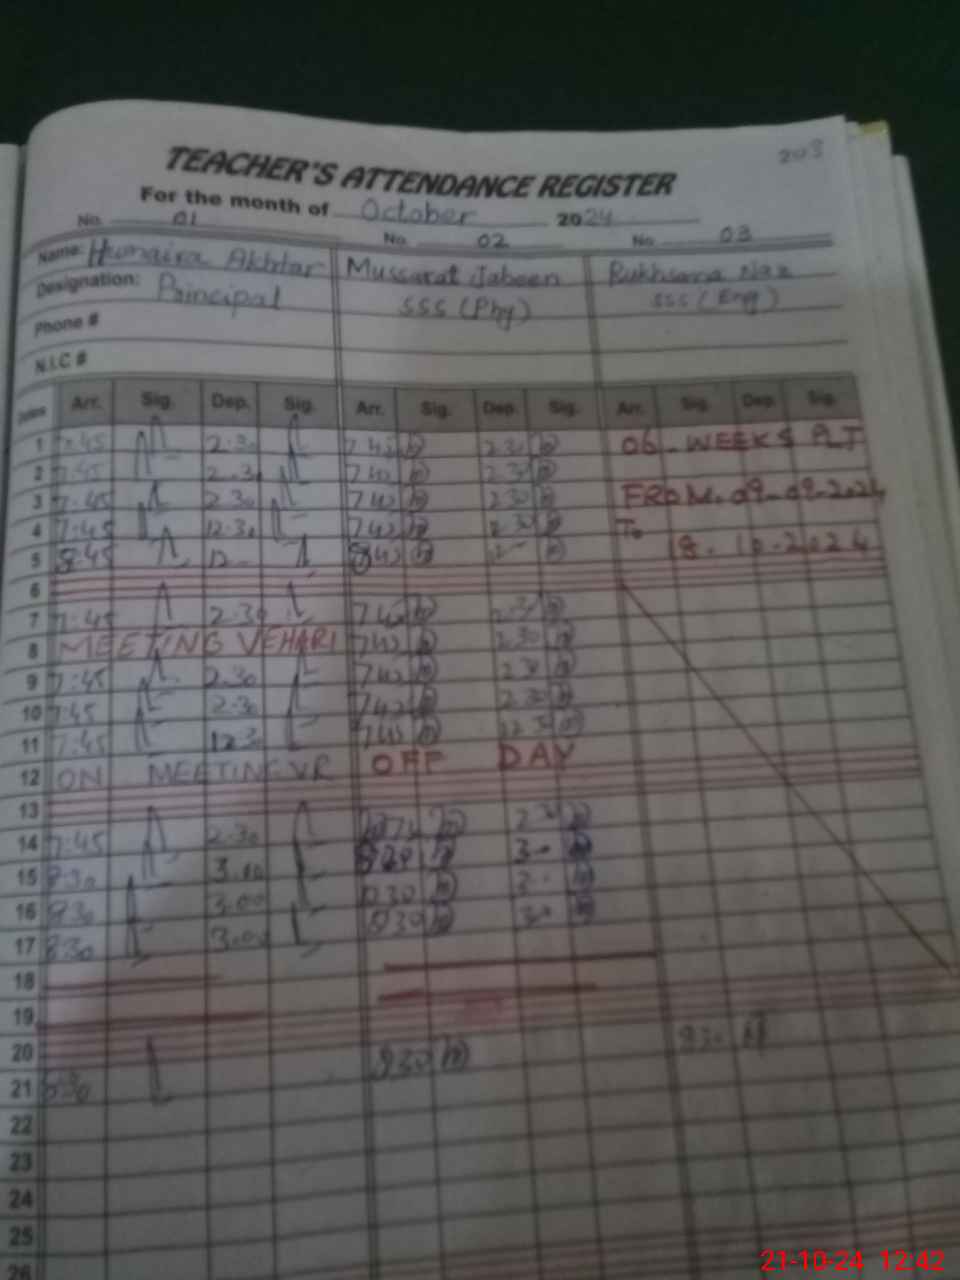 203
TEACHER'S ATTENDANCE REGISTER
For the month of October 2024
No. 01 No. 02 No 03
Name: Humaira Akhtar Mussarat Jabeen Rukhsana Naz
Designation: Principal SSS (Phy) SSS (Eng)
Phone #
N.I.C #
Dates Arr. Sig. Dep. Sig. Arr. Sig. Dep. Sig. Arr. Sig. Dep. Sig.
1 7:45 2:30 742 230 06 - WEEKS PLT
2 7:45 2:30 742 230
3 7:45 2.30 742 230 FROM. 09-09-2024
4 7:45 12:30 742 To
5 8:45 12 842 18. 10.2024
6
7 7:45 2:30 742
8 MEETING VEHARI 742 2.30
9 7:45 2:30 742 2.30
10 7:45 2:30 742 2.30
11 7:45 12:30 742 12.30
12 ON MEETING VR OFF DAY
13
14 7:45 2:30
15 8:30 3.00
16 8:30 3:00 830
17 8:30 3:00 830
18
19
20
21 8:30 830 830
22
23
24
25
26
21-10-24 12:42